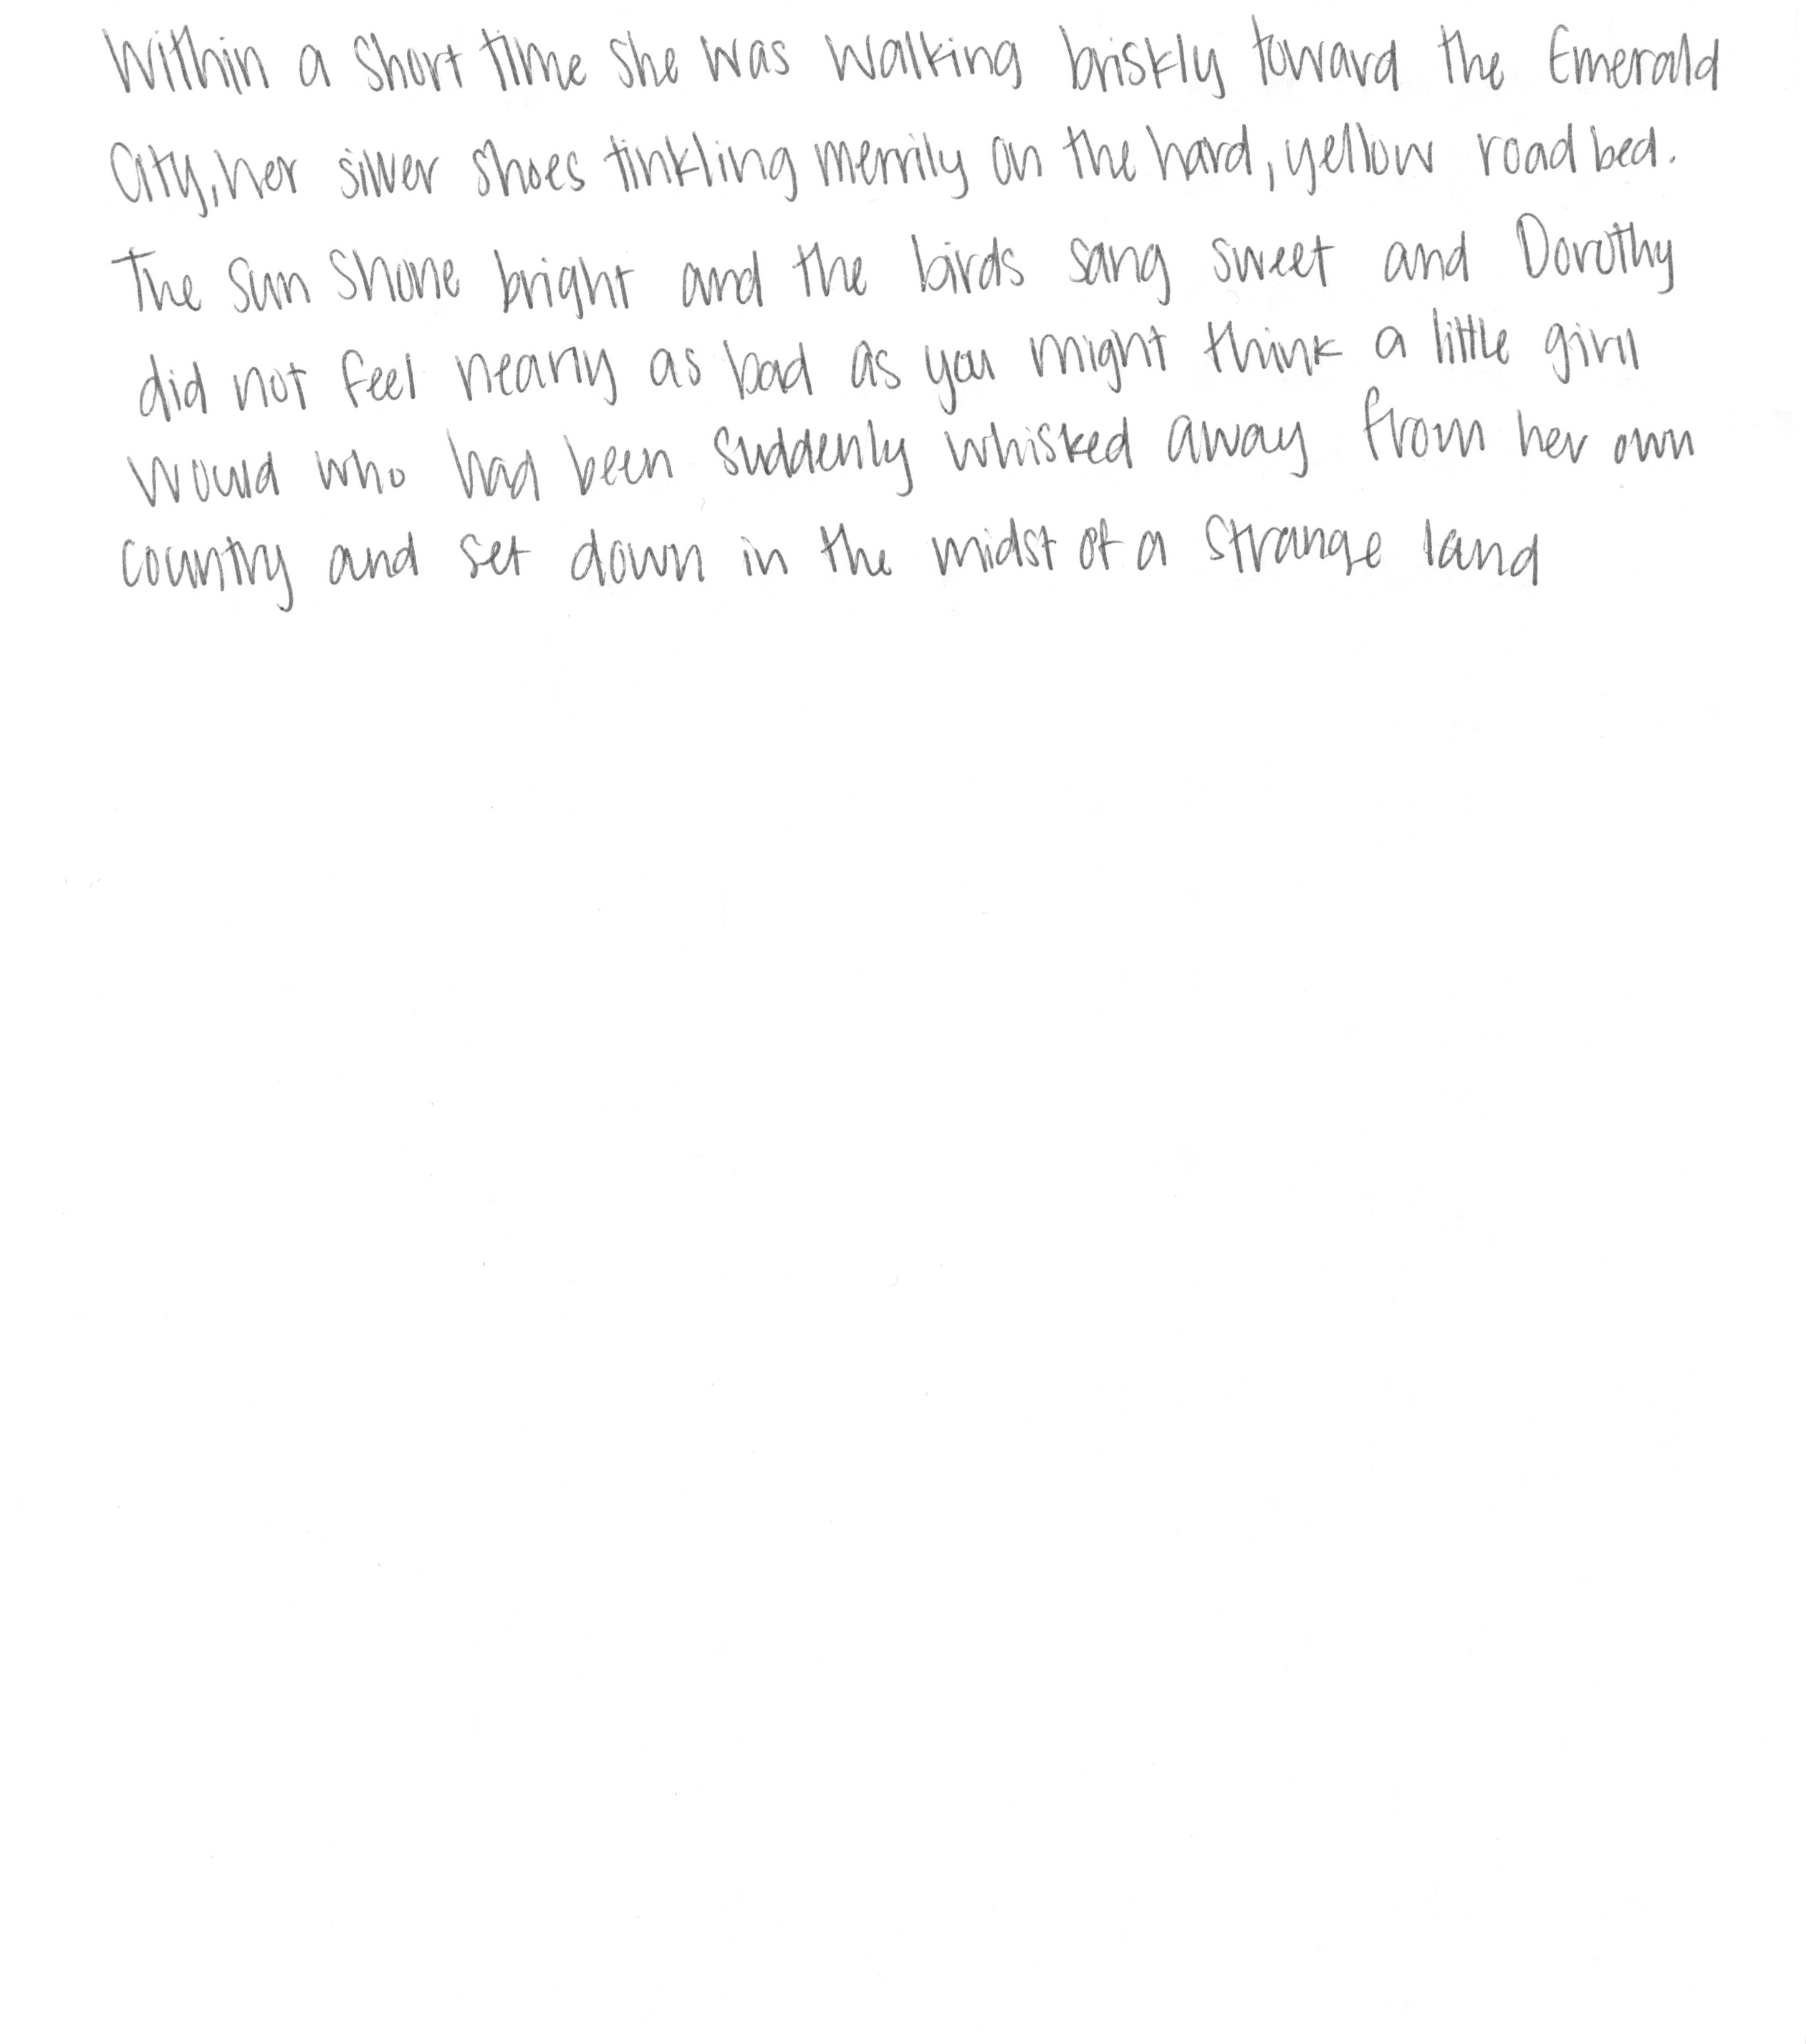 Within a short time she was walking briskly toward the Emerald
City, her silver shoes tinkling merrily on the hard, yellow road bed.
The sun shone bright and the birds sang sweet and Dorothy
did not feel nearly as bad as you might think a little girl
would who had been suddenly whisked away from her own
country and set down in the midst of a strange land